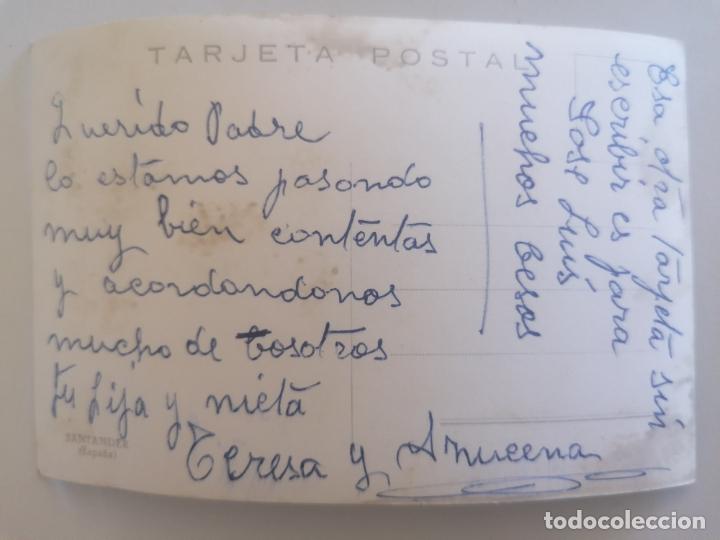 TARJETA POSTAL
Querido Padre
lo estamos pasando
muy bien contentas
y acordandonos
mucho de bosotros
tu hija y nieta
Teresa y Azucena
muchos besos
Esa otra tarjeta sin
escribir es para
Jose Luis
SANTANDER
(España)
todocoleccion